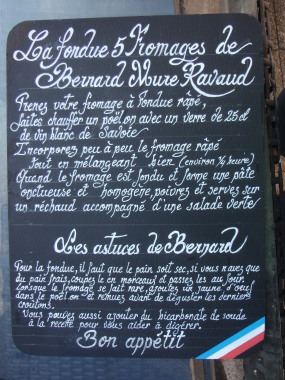 La fondue 5 Fromages de
Bernard Mure Ravaud
Prenez votre fromage à fondue râpé,
faites chauffer un poêlon avec un verre de 25 cl
de vin blanc de Savoie
Incorporez peu à peu le fromage râpé
tout en mélangeant bien (environ ½ heure)
Quand le fromage est fondu et forme une pâte
onctueuse et homogène, poivrez et servez sur
un réchaud accompagné d'une salade verte
Les astuces de Bernard
Pour la fondue, il faut que le pain soit sec, si vous n'avez que
du pain frais, coupez le en morceaux et passez les au four
Lorsque le fromage se fait rare, ajoutez un jaune d'oeuf
dans le poêlon et remuez avant de déguster les derniers
croûtons.
Vous pouvez aussi ajouter du bicarbonate de soude
à la recette pour vous aider à digérer.
Bon appétit